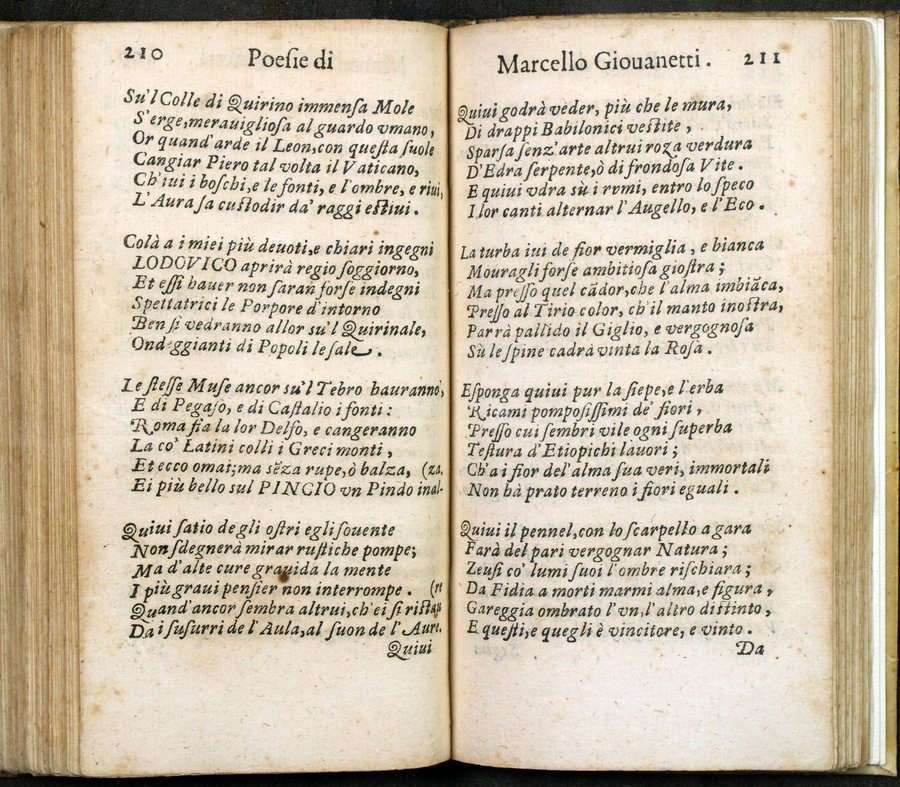 210 Poesie di
Su'l Colle di Quirino immensa Mole
S'erge, merauigliosa al guardo vmano,
Or quand'arde il Leon, con questa suole
Cangiar Piero tal volta il Vaticano,
Ch'iui i boschi, e le fonti, e l'ombre, e riui,
L'Aura sa custodir da' raggi estiui.
Colà a i miei più deuoti, e chiari ingegni
LODOVICO aprirà regio soggiorno,
Et essi hauer non saran forse indegni
Spettatrici le Porpore d'intorno
Ben si vedranno allor su'l Quirinale,
Ondeggianti di Popoli le sale.
Le stesse Muse ancor su'l Tebro hauranno,
E di Pegaso, e di Castalio i fonti:
Roma fia la lor Delfo, e cangeranno
La co' Latini colli i Greci monti,
Et ecco omai; ma sẽza rupe, ò balza, (za.
Ei più bello sul PINCIO vn Pindo inal-
Quiui satio de gli ostri egli souente
Non sdegnerà mirar rustiche pompe;
Ma d'alte cure grauida la mente
I più graui pensier non interrompe. (ri
Quand'ancor sembra altrui, ch'ei si ristau
Da i susurri de l'Aula, al suon de l'Aure.
Quiui
Marcello Giouanetti. 211
Quiui godrà veder, più che le mura,
Di drappi Babilonici vestite,
Sparsa senz'arte altrui roza verdura
D'Edra serpente, ò di frondosa Vite.
E quiui vdra sù i rumi, entro lo speco
I lor canti alternar l'Augello, e l'Eco.
La turba iui de fior vermiglia, e bianca
Mouragli forse ambitiosa giostra;
Ma presso quel cãdor, che l'alma imbiãca,
Presso al Tirio color, ch'il manto inostra,
Parrà pallido il Giglio, e vergognosa
Sù le spine cadrà vinta la Rosa.
Esponga quiui pur la siepe, e l'erba
Ricami pomposissimi de' fiori,
Presso cui sembri vile ogni superba
Testura d'Etiopichi lauori;
Ch'a i fior del'alma sua veri, immortali
Non hà prato terreno i fiori eguali.
Quiui il pennel, con lo scarpello a gara
Farà del pari vergognar Natura;
Zeusi co' lumi suoi l'ombre rischiara;
Da Fidia a morti marmi alma, e figura,
Gareggia ombrato l'vn, l'altro distinto,
E questi, e quegli è vincitore, e vinto.
Da